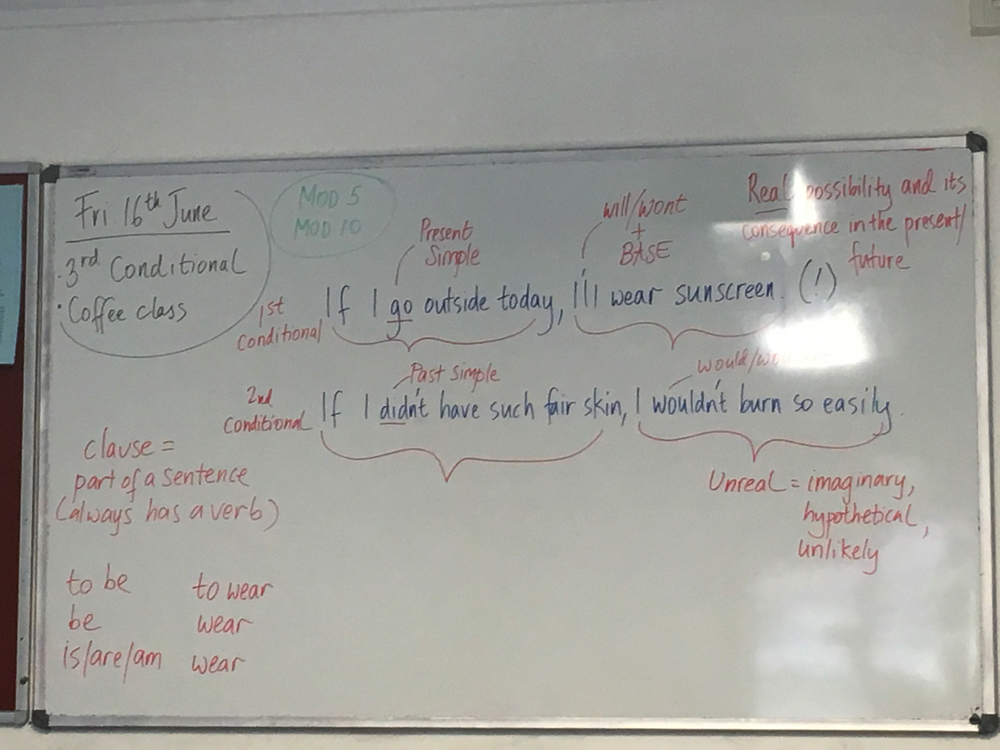 Fri 16th June
· 3rd Conditional
· Coffee class
MOD 5
MOD 10
Present
Simple
will/wont
+
BASE
Real possibility and its
consequence in the present/
future
1st
Conditional
If I go outside today, I'll wear sunscreen. (!)
Past Simple
2nd
Conditional
If I didn't have such fair skin, I wouldn't burn so easily.
Unreal = imaginary,
hypothetical,
unlikely
clause =
part of a sentence
(always has a verb)
to be to wear
be wear
is/are/am wear